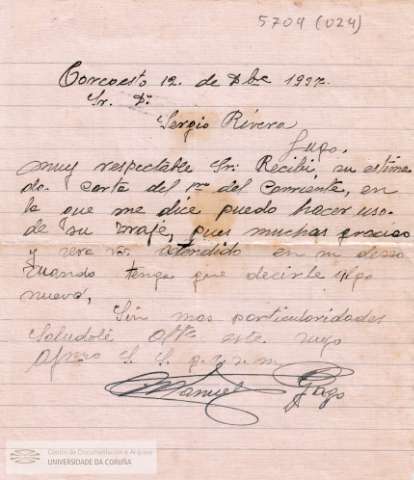 5704 (024)
Corcoesto 12. de Dbe 1937.
Sr. Dn
Sergio Rivera
Lugo.
muy respectable Sr: Recibi, su estima
da carta del 1º del Corriente, en
la que me dice puedo hacer uso.
de su traje, pues muchas gracias
y sera vd. atendido en su deseo
cuando tenga que decirle algo
nuevo,
Sin mas particularidades
Saludole att. este suyo
Afmo S. S. q. e. s. m.
Manuel Gago
Centro de Documentación e Arquivo
UNIVERSIDADE DA CORUÑA